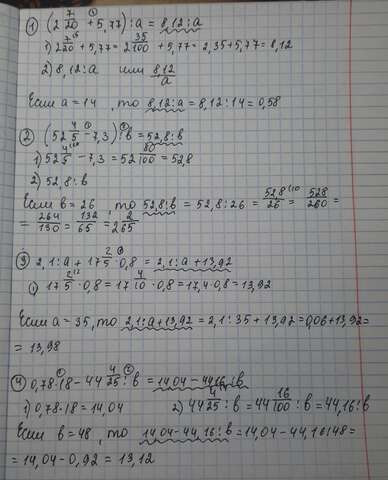 ① (2 7/20 + 5,77) : a = 8,12 : a
1) 2 7/20 + 5,77 = 2 35/100 + 5,77 = 2,35 + 5,77 = 8,12
2) 8,12 : a или 8,12/a
Если a = 14, то 8,12 : a = 8,12 : 14 = 0,58
② (52 4/5 - 7,3) : b = 52,8 : b
1) 52 4/5 - 7,3 = 52 80/100 = 52,8
2) 52,8 : b
Если b = 26 то 52,8 : b = 52,8 : 26 = 52,8/26 = 528/260 =
= 264/130 = 132/65 = 2 2/65
③ 2,1 : a + 17 2/5 · 0,8 = 2,1 : a + 13,92
1) 17 2/5 · 0,8 = 17 4/10 · 0,8 = 17,4 · 0,8 = 13,92
Если a = 35, то 2,1 : a + 13,92 = 2,1 : 35 + 13,92 = 0,06 + 13,92 =
= 13,98
④ 0,78 · 18 - 44 4/25 : b = 14,04 - 44,16 : b
1) 0,78 · 18 = 14,04 2) 44 4/25 : b = 44 16/100 : b = 44,16 : b
Если b = 48, то 14,04 - 44,16 : b = 14,04 - 44,16 : 48 =
= 14,04 - 0,92 = 13,12